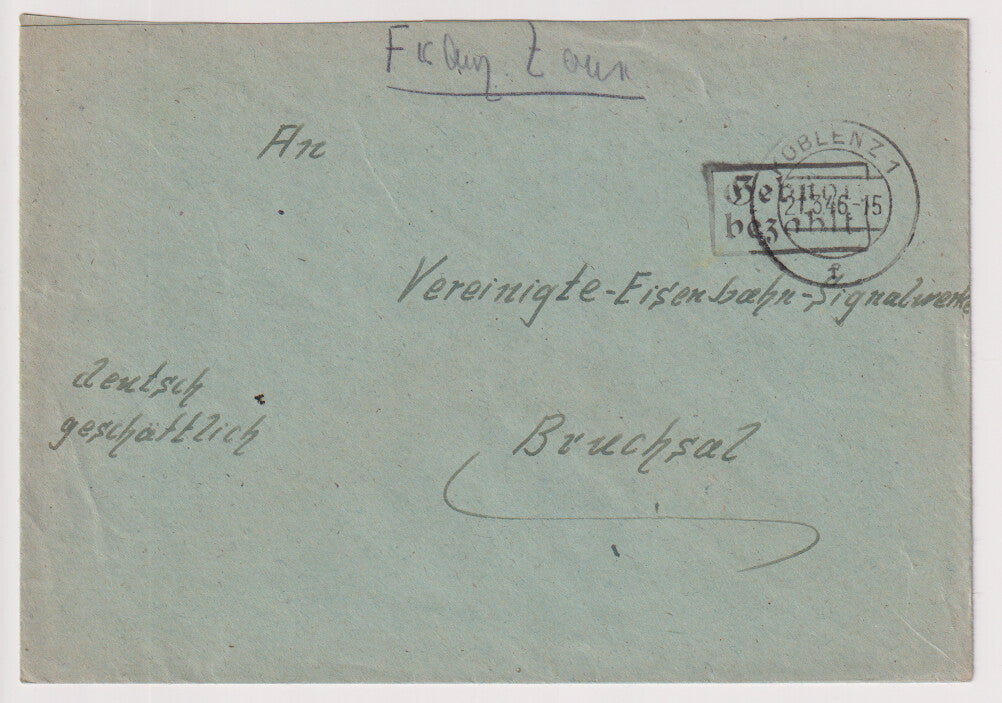 Franz. Zone
An
KOBLENZ 1
Gebühr
bezahlt
21.3.46-15
f
Vereinigte-Eisenbahn-Signalwerke
deutsch
geschäftlich
Bruchsal